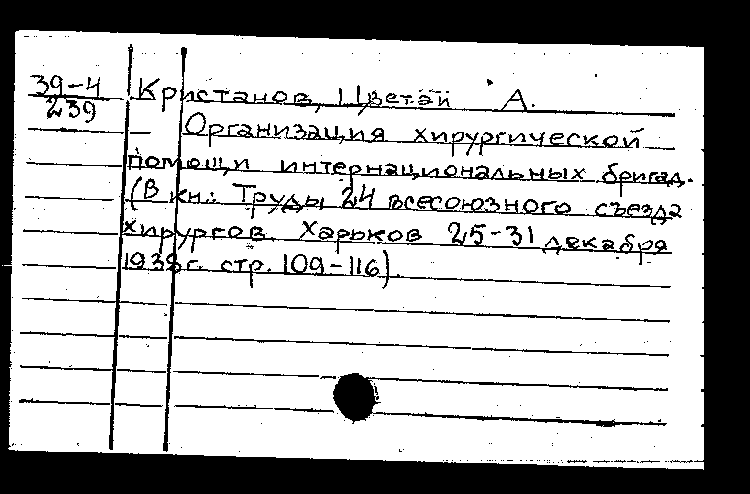 39-4
239
Кристанов, Цветан А.
Организация хирургической
помощи интернациональных бригад.
(В кн.: Труды 24 всесоюзного съезда
хирургов. Харьков 25-31 декабря
1938 г. стр. 109-116).